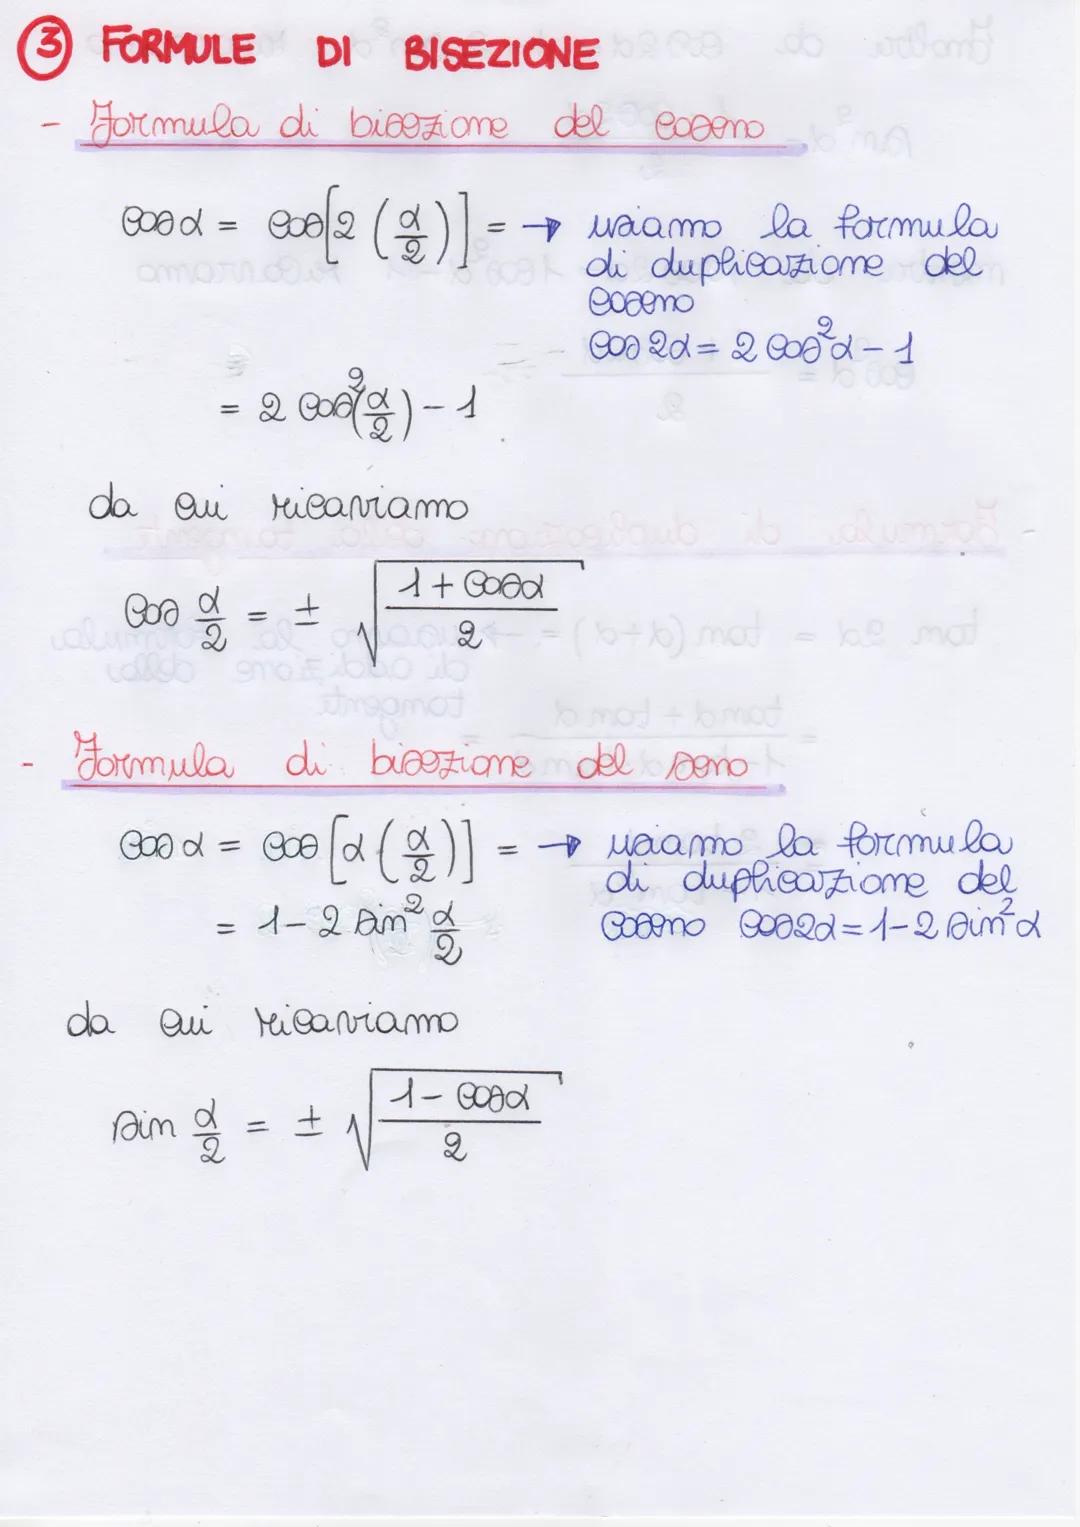 3 FORMULE DI BISEZIONE
- Formula di bisezione del coseno
cos α = cos[2 (α/2)] = → usiamo la formula
di duplicazione del
coseno
cos 2α = 2 cos²α - 1
= 2 cos²(α/2) - 1
da cui ricaviamo
cos α/2 = ± √((1 + cosα)/2)
- Formula di bisezione del seno
cos α = cos [α (α/2)] = → usiamo la formula
di duplicazione del
= 1 - 2 sin² α/2 coseno cos2α = 1 - 2 sin²α
da cui ricaviamo
sin α/2 = ± √((1 - cosα)/2)